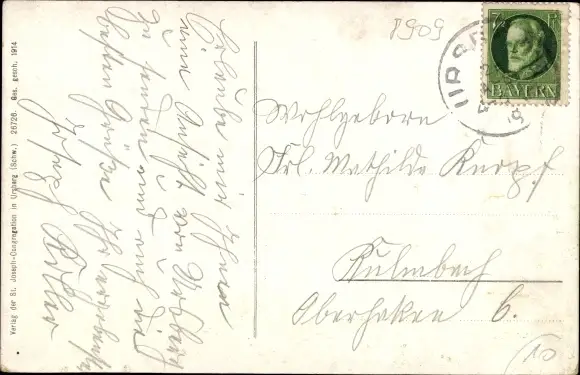 1909
URSB
7½ Pf
BAYERN
Wohlgeboren
Frl. Mathilde Knopf
Kulmbach
Oberhaken 6.
Erlaube mir Ihnen
eine Ansicht von Ursberg
zu senden und auch die
besten Grüße
Verlag der St. Joseph-Congregation in Ursberg (Schw.) 26726. Ges. gesch. 1914